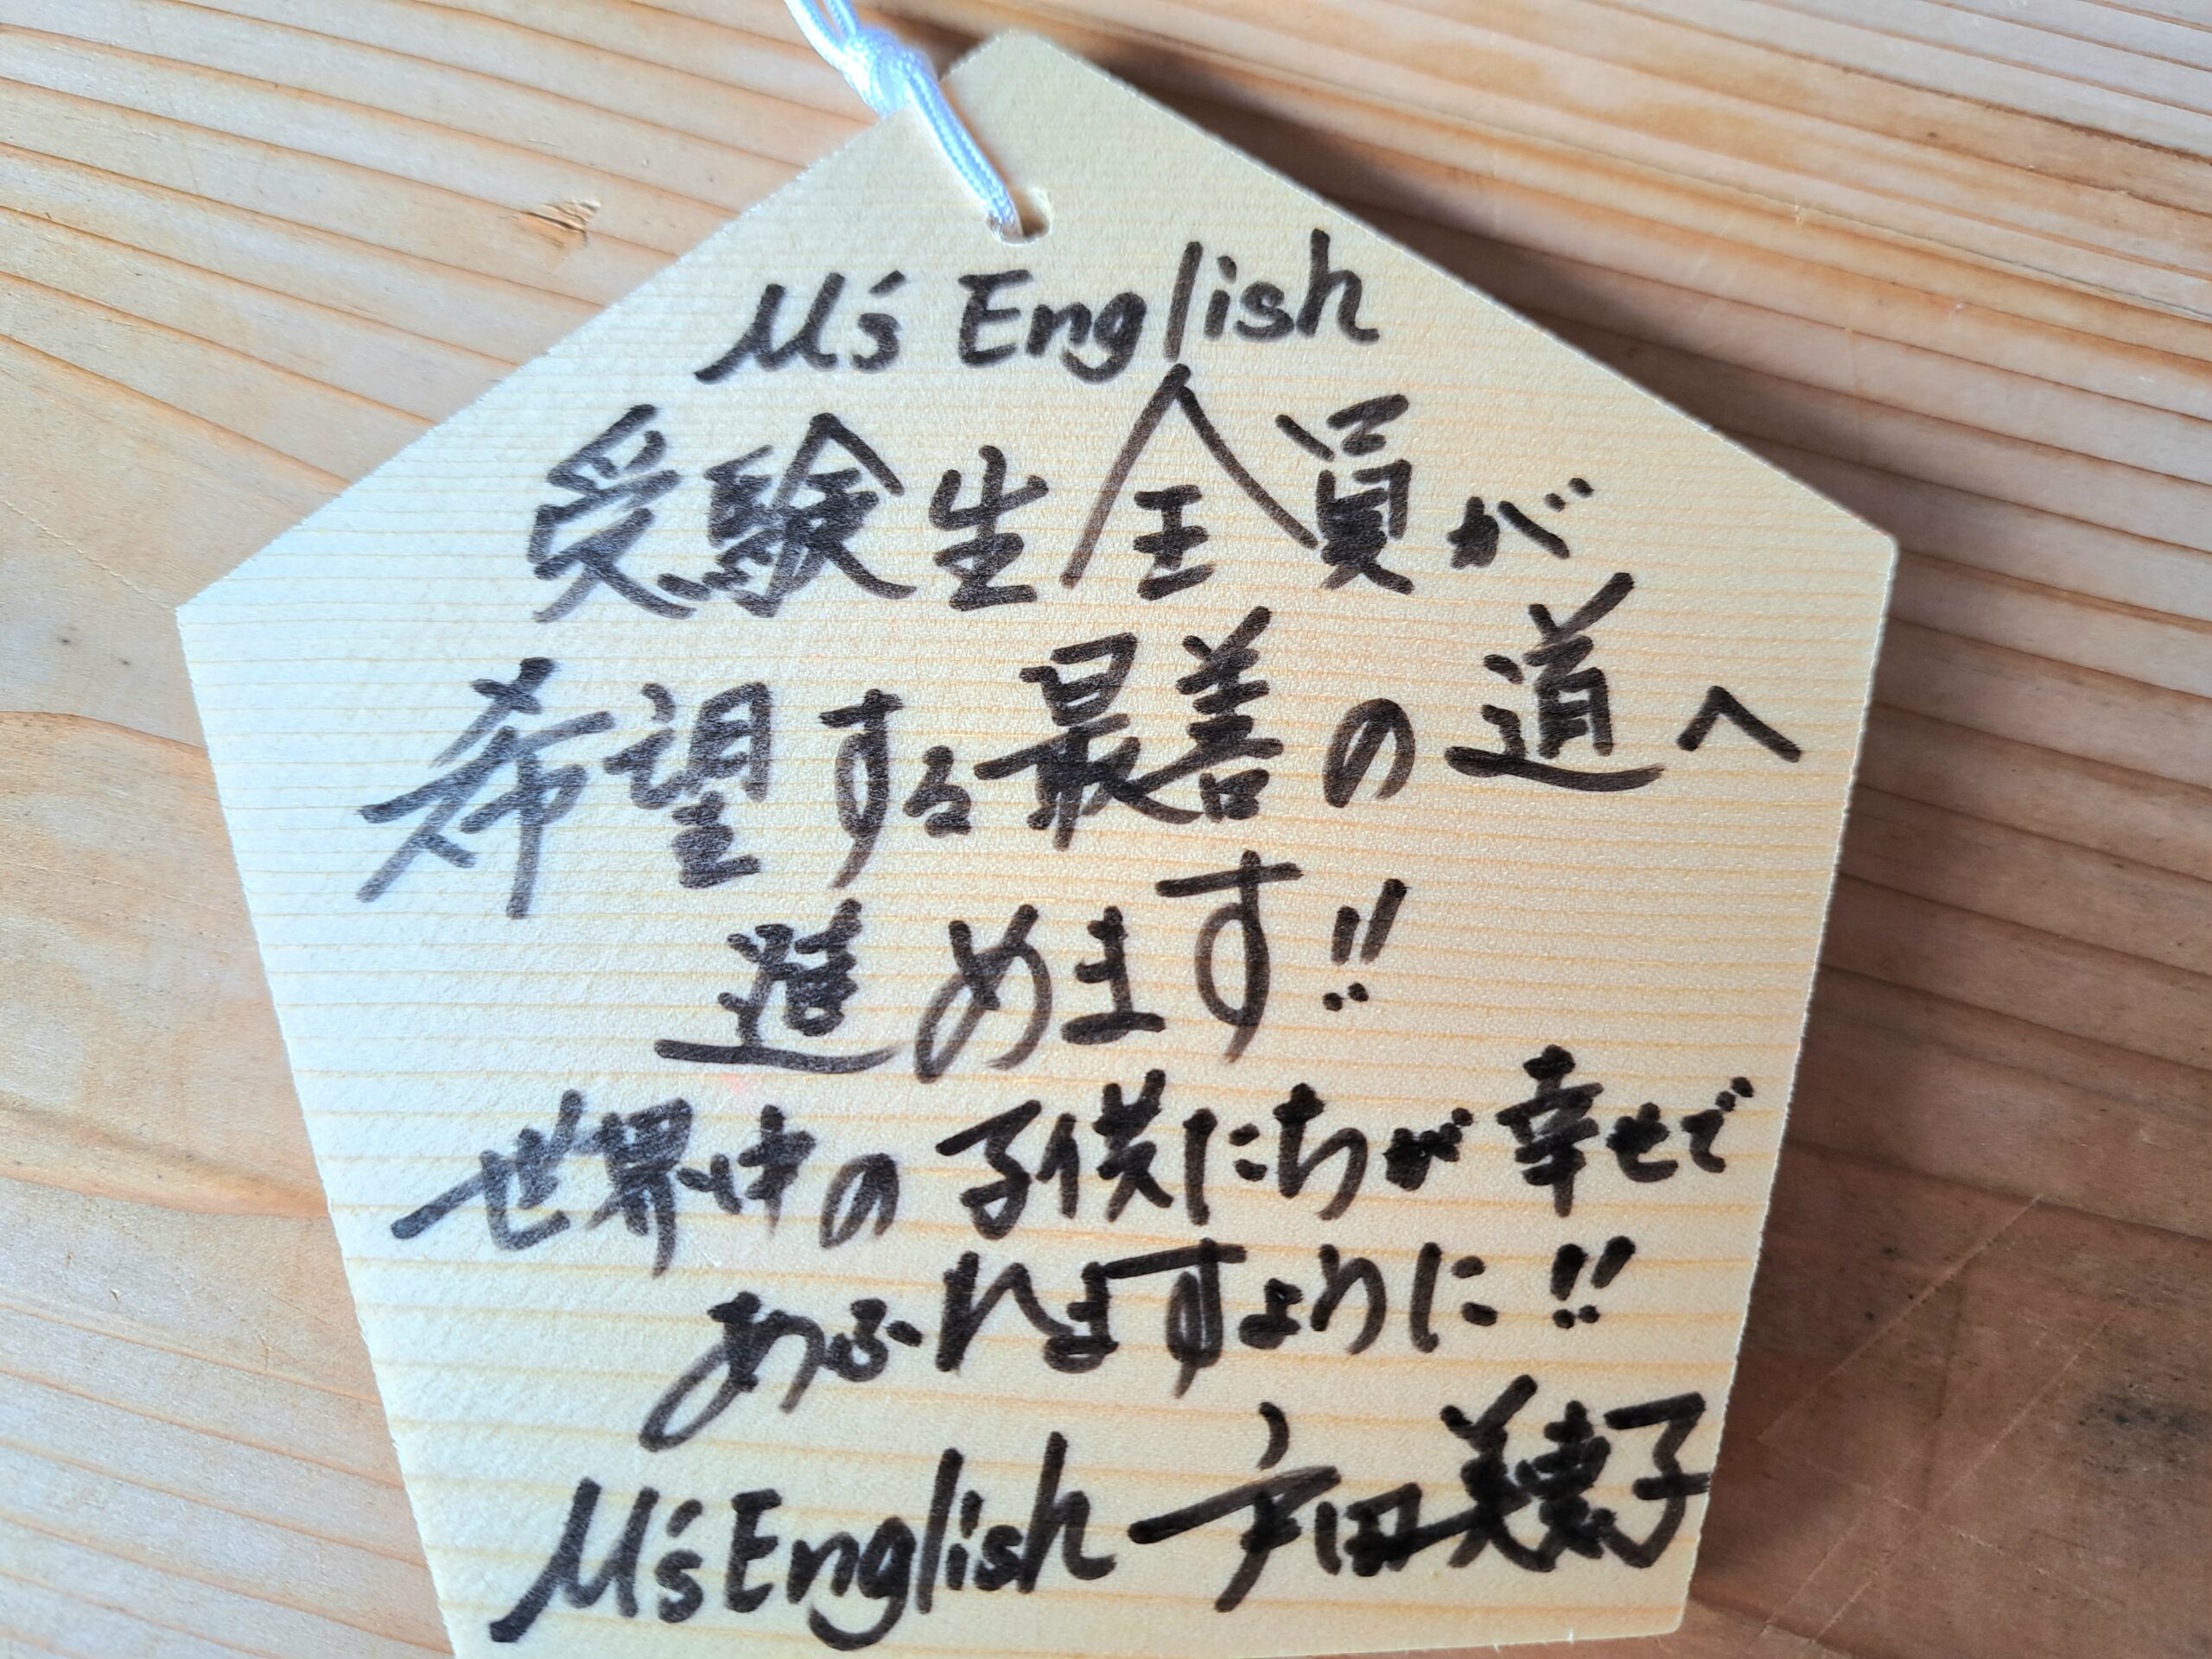 M's English
受験生全員が
希望する最善の道へ
進めます!!
世界中の子供たちが幸せで
あふれますように!!
M's English 戸田美恵子